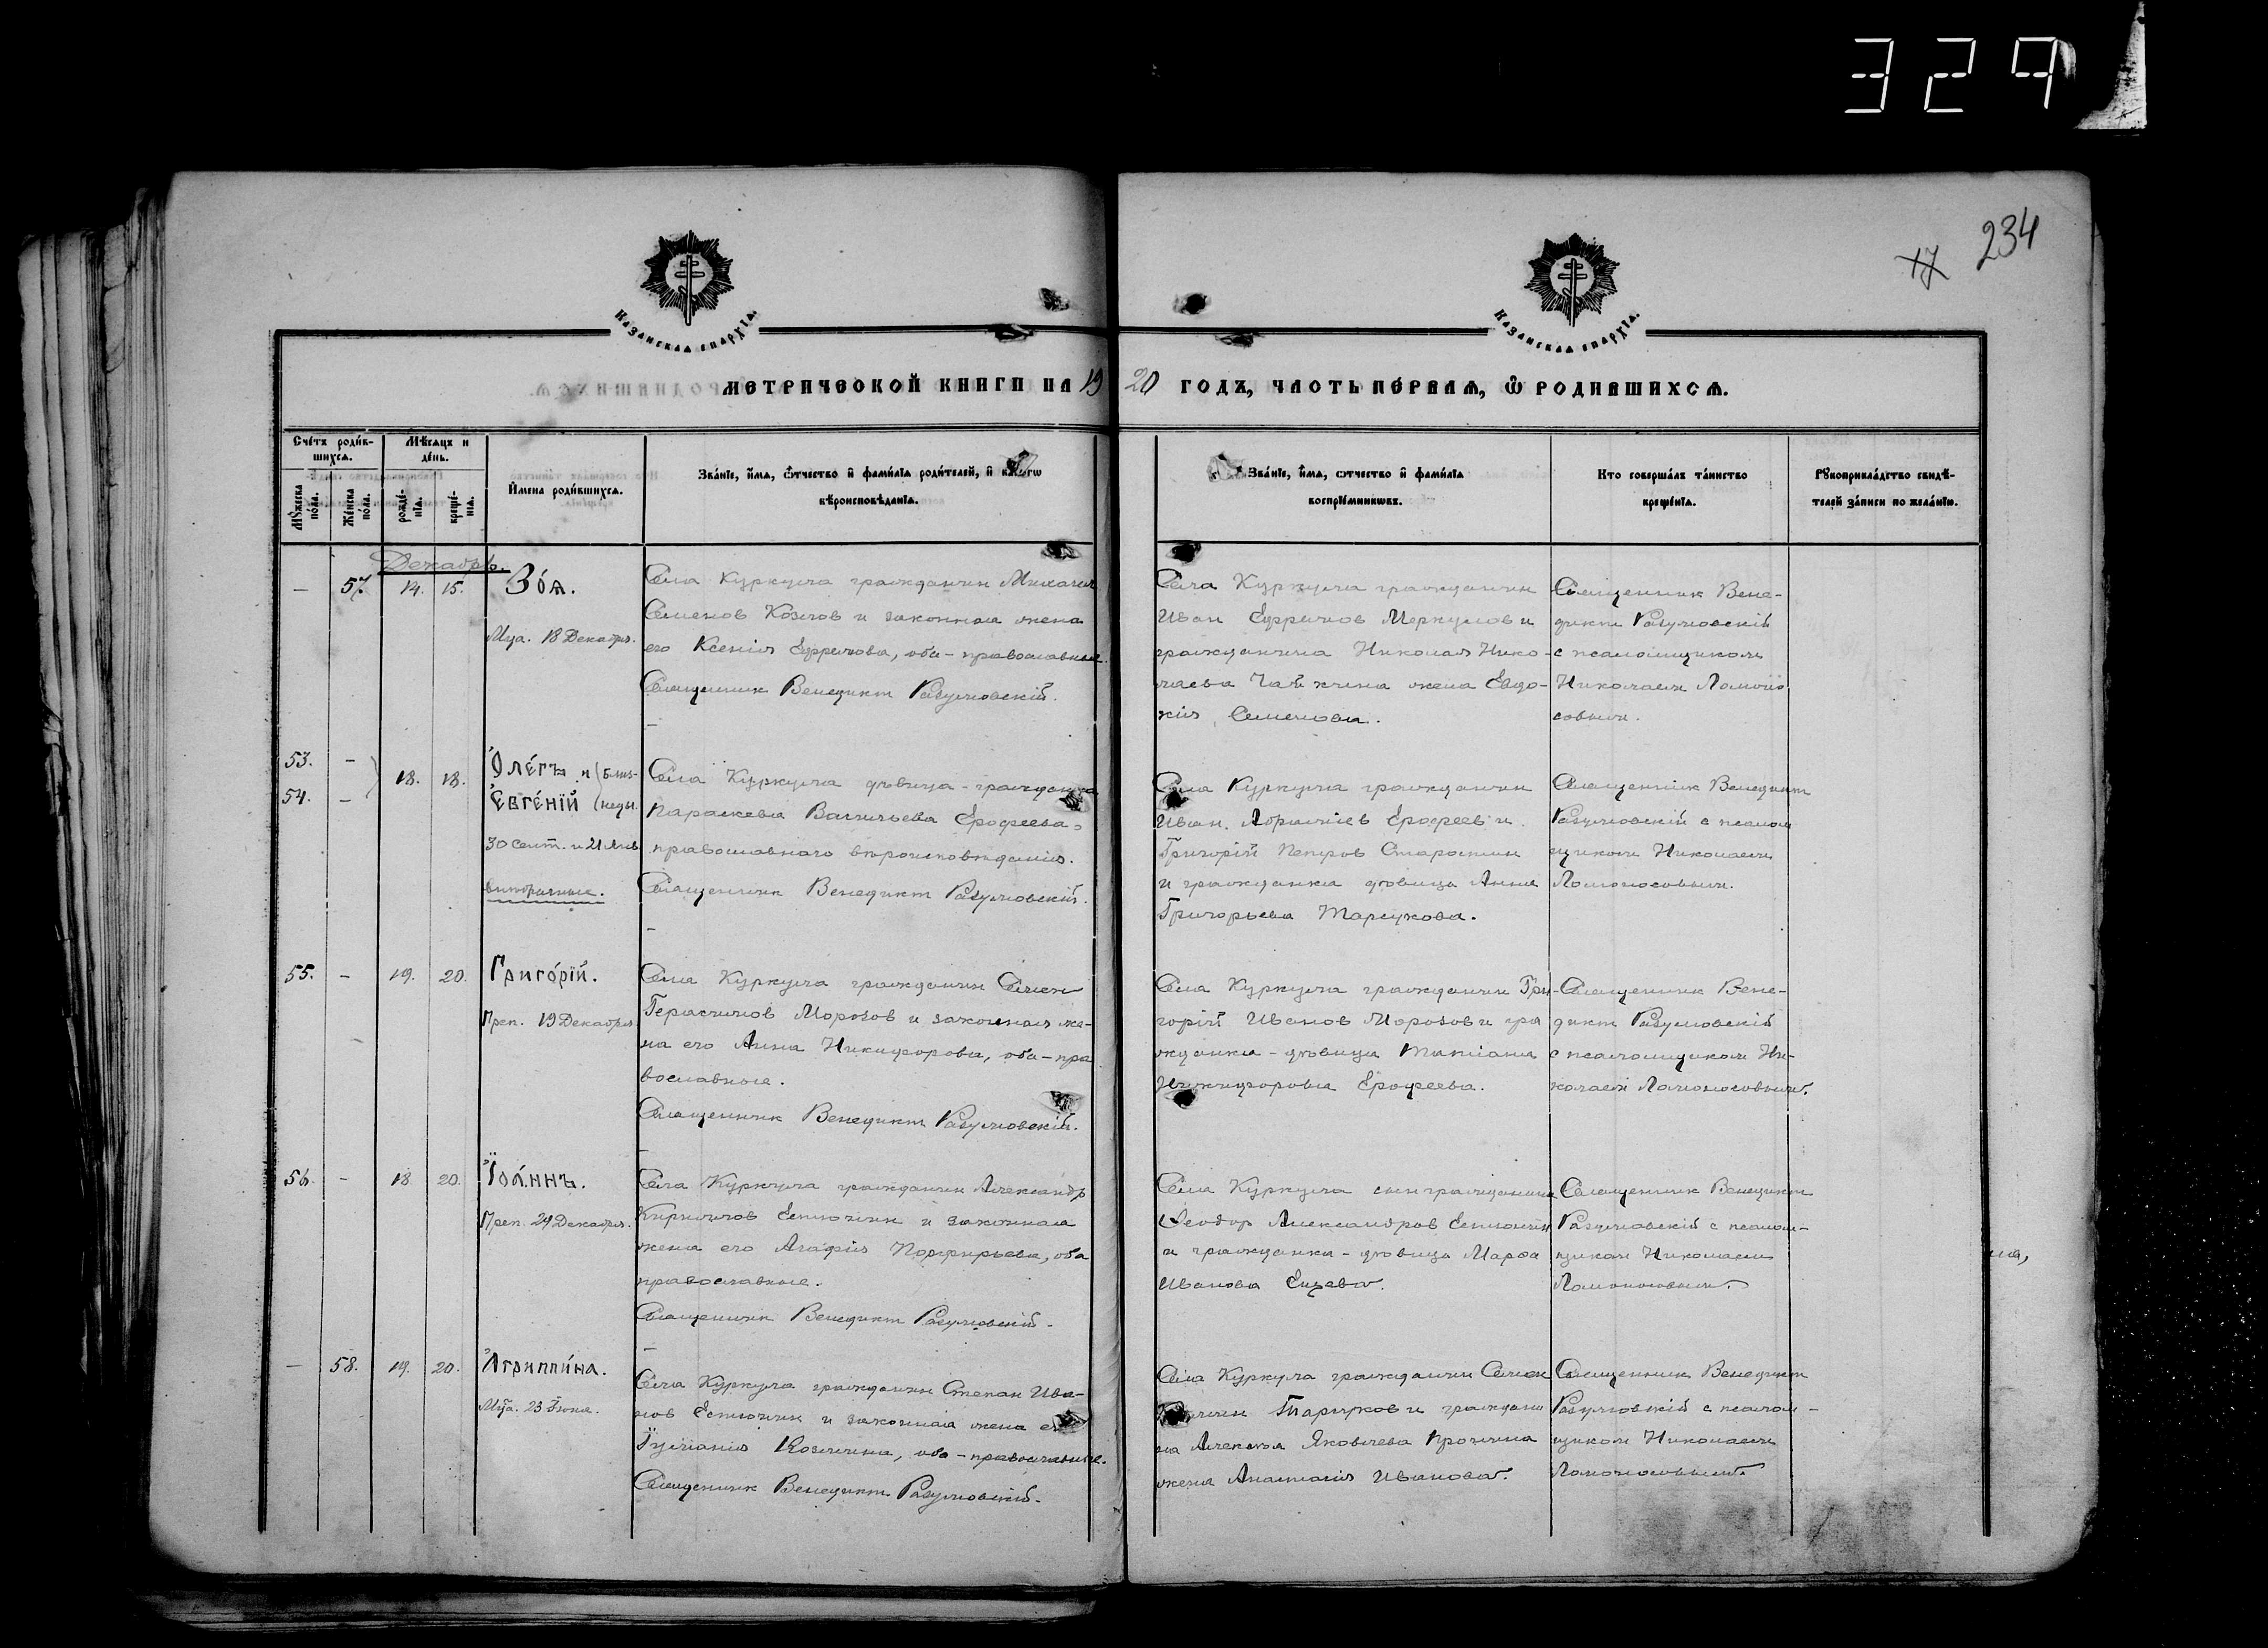 329
234
17
Казанская епархїа.
Казанская епархїа.
метрической книги на 1920 годъ, часть первая, ѡ родившихся.
Счетъ родившихся.
Мѣсяцъ и день.
Имена родившихся.
Званїе, имя, ѿчество и фамилїа родителей, и когѡ вѣроисповѣданїа.
Званїе, имя, ѿчество и фамилїа воспрїемникѡвъ.
Кто совершалъ таинство крещенїа.
Рꙋкоприкладство свидѣтелей записи по желанїю.
Мꙋжеска пола.
Женска пола.
рожденїа.
крещенїа.
Декабрь.
— 57. 14. 15. Зоя.
Мца. 18 Декабря.
Села Куркула гражданин Михаил
Семенов Козлов и законная жена
его Ксенія Ефремова, оба - православные.
Священник Венедикт Разумовскій.
Села Куркула гражданин
Иван Ефремов Меркулов и
гражданина Николая Нико-
лаева Чайкина жена Евдо-
кія Семенова.
Священник Вене-
дикт Разумовскій
с псаломщиком
Николаем Ломоно-
совым.
53. —
54. —
18. 18.
Олегъ и
Евгеній
(Близ-
нецы.
30 сент. и 21 Янв
вторичные.
Села Куркула дѣвица - гражданка
Параскева Васильева Ерофеева,
православного вѣроисповѣданія.
Священник Венедикт Разумовскій.
Села Куркула гражданин
Иван Ерофеев и
Григорій Петров Старостин
и гражданка дѣвица Анна
Григорьева Тарсукова.
Священник Венедикт
Разумовскій с псалом
щиком Николаем
Ломоносовым.
55. — 19. 20. Григорій.
Преп. 19 Декабря
Села Куркула гражданин Семен
Герасимов Морозов и законная же-
на его Анна Никифорова, оба - пра
вославные.
Священник Венедикт Разумовскій.
Села Куркула гражданин Гри-
горій Иванов Морозов и гра
жданка - дѣвица Татіана
Никифорова Ерофеева.
Священник Вене-
дикт Разумовскій
с псаломщиком Ни-
колаем Ломоносовым.
56. — 18 20. Іоаннъ.
Преп. 29 Декабря.
Села Куркула гражданин Александр
Кириллов Естюнин и законная
жена его Агафія Порфирьева, оба
православные.
Священник Венедикт Разумовскій.
Села Куркула сын гражданина
Ѳеодор Александров Естюнин
и гражданка - дѣвица Марѳа
Иванова
Священник Венедикт
Разумовскій с псалом-
щиком Николаем
Ломоносовым.
— 58. 19. 20. Агриппина.
Мца. 23 Іюня.
Села Куркула гражданин Степан Ива-
нов Естюнин и законная жена его
Іуліанія Козмина, оба - православные.
Священник Венедикт Разумовскій.
Села Куркула гражданин Семен
Тарсуков и граждани
на Алексея Яковлева Пронина
жена Анастасія Иванова.
Священник Венедикт
Разумовскій с псалом-
щиком Николаем
Ломоносовым.